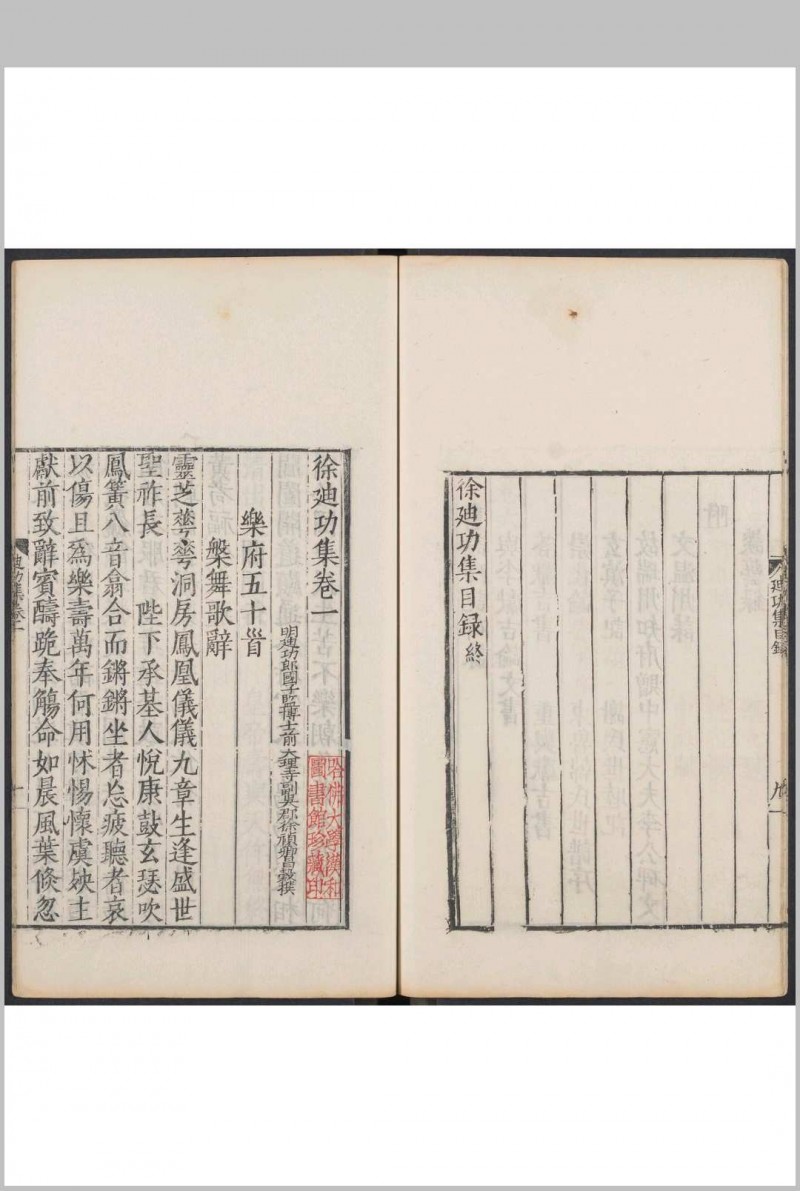 徐廸功集目録終
廸功集目録
徐廸功集卷一
明廸功郎國子監博士前大理寺副吳郡徐禎卿昌穀撰
哈佛大學漢和
圖書館珍藏印
樂府五十首
槃舞歌辭
靈芝華荂洞房鳳凰儀儀九章生逢盛世
聖祚長 陛下承基人悅康鼓玄瑟吹
鳳簧八音翕合而鏘鏘坐者忘疲聽者哀
以傷且爲樂壽萬年何用怵惕懷虞姎主
獻前致辭賓醻跪奉觴命如晨風葉倏忽
廸功集卷一